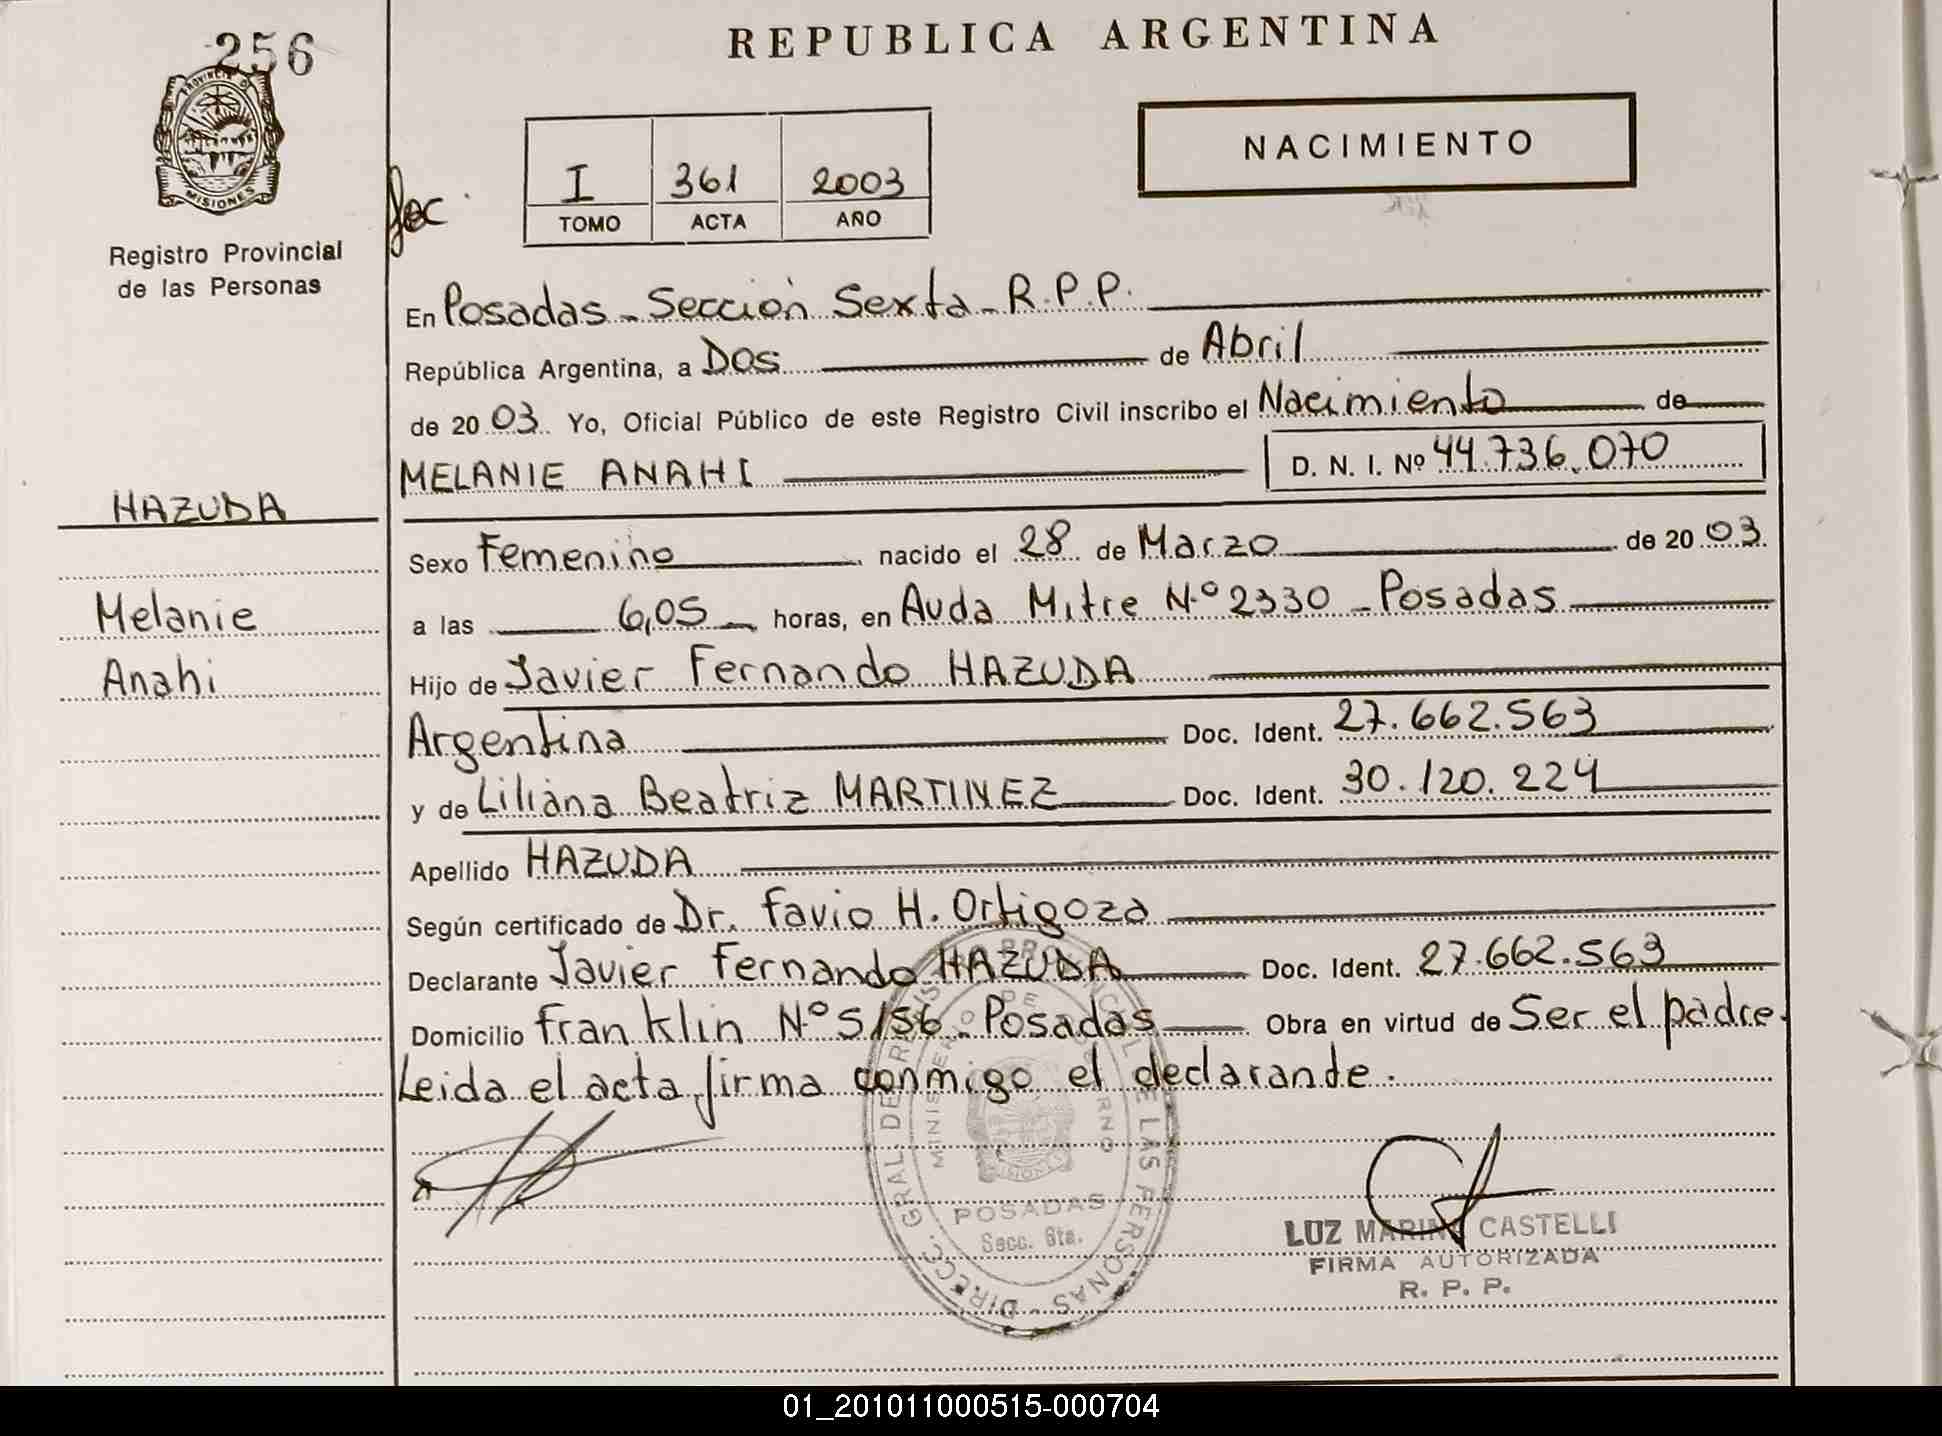 256
REPUBLICA ARGENTINA
PROVINCIA D
MISIONES
Registro Provincial
de las Personas
I 361 2003
TOMO ACTA AÑO
NACIMIENTO
En Posadas - Sección Sexta - R.P.P.
República Argentina, a Dos de Abril
de 2003. Yo, Oficial Público de este Registro Civil inscribo el Nacimiento de
MELANIE ANAHI D. N. I. Nº 44.736.070
HAZUDA
Melanie
Anahi
Sexo Femenino nacido el 28 de Marzo de 2003.
a las 6,05 horas, en Avda Mitre N.º 2330 - Posadas
Hijo de Javier Fernando HAZUDA
Argentina Doc. Ident. 27.662.563
y de Liliana Beatriz MARTINEZ Doc. Ident. 30.120.224
Apellido HAZUDA
Según certificado de Dr. Favio H. Ortigoza
Declarante Javier Fernando HAZUDA Doc. Ident. 27.662.563
Domicilio Franklin Nº 5156 - Posadas Obra en virtud de Ser el padre.
Leida el acta firma conmigo el declarante.
DIRECC. GRAL. DE REGISTRO PROVINCIAL DE LAS PERSONAS
MINISTERIO DE GOBIERNO
MISIONES
POSADAS
Secc. 6ta.
LUZ MARINA CASTELLI
FIRMA AUTORIZADA
R. P. P.
01_201011000515-000704